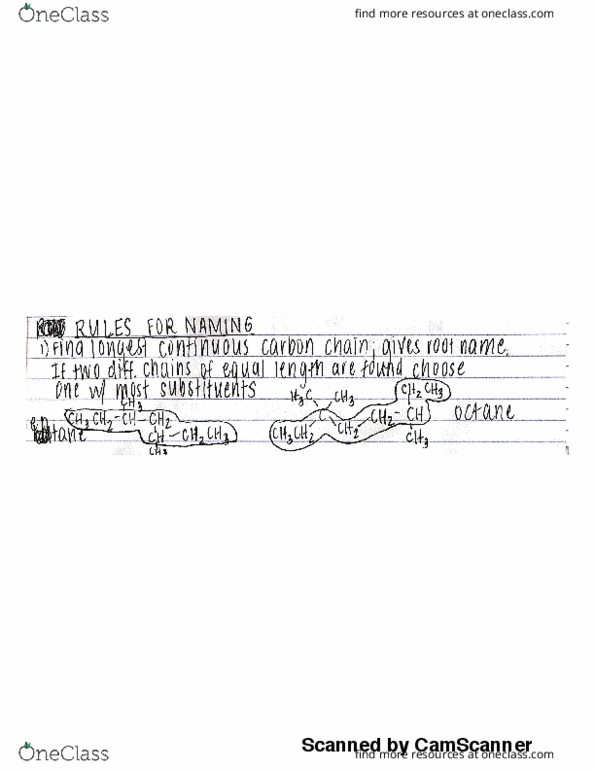 OneClass
find more resources at oneclass.com
RULES FOR NAMING
1) Find longest continuous carbon chain; gives root name.
If two diff. chains of equal length are found choose
one w/ most substituents
CH3
CH3 CH2 - CH - CH2
CH - CH2 CH3
CH3
H3C CH3
CH2 CH3
CH3CH2 C CH2 CH2 - CH
CH3
octane
OneClass
Scanned by CamScanner
find more resources at oneclass.com